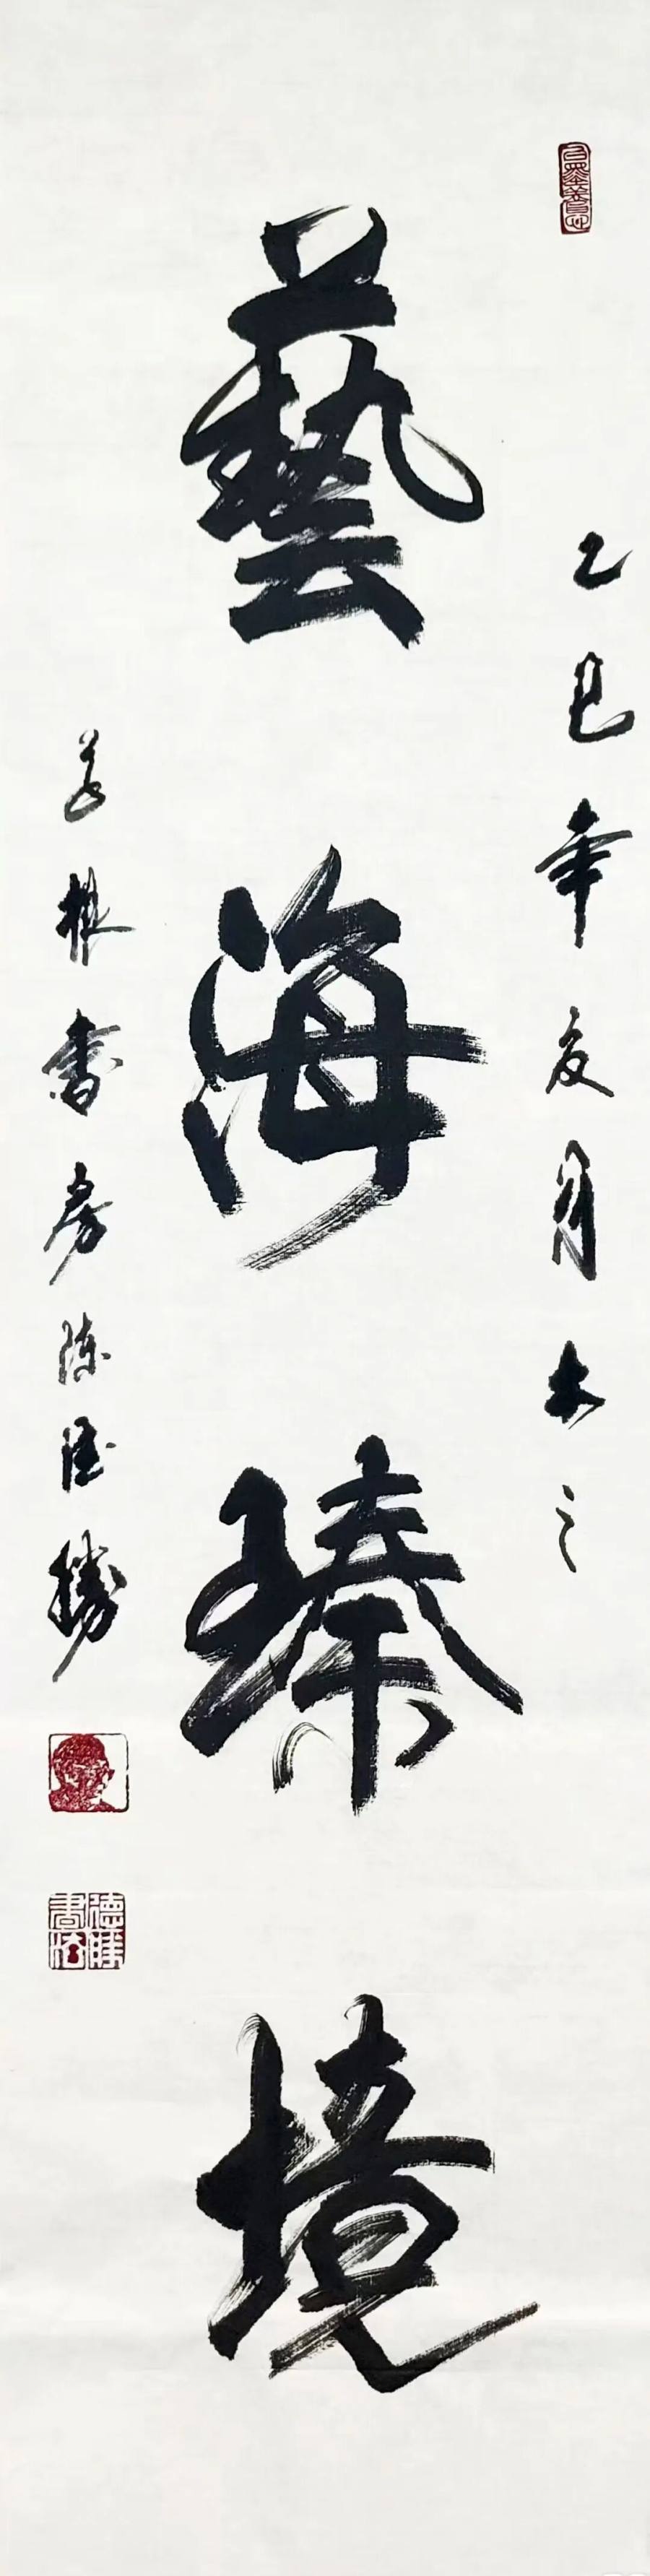 乙巳年夏月书之
藝海臻境
根書房陈德勝
德勝書法